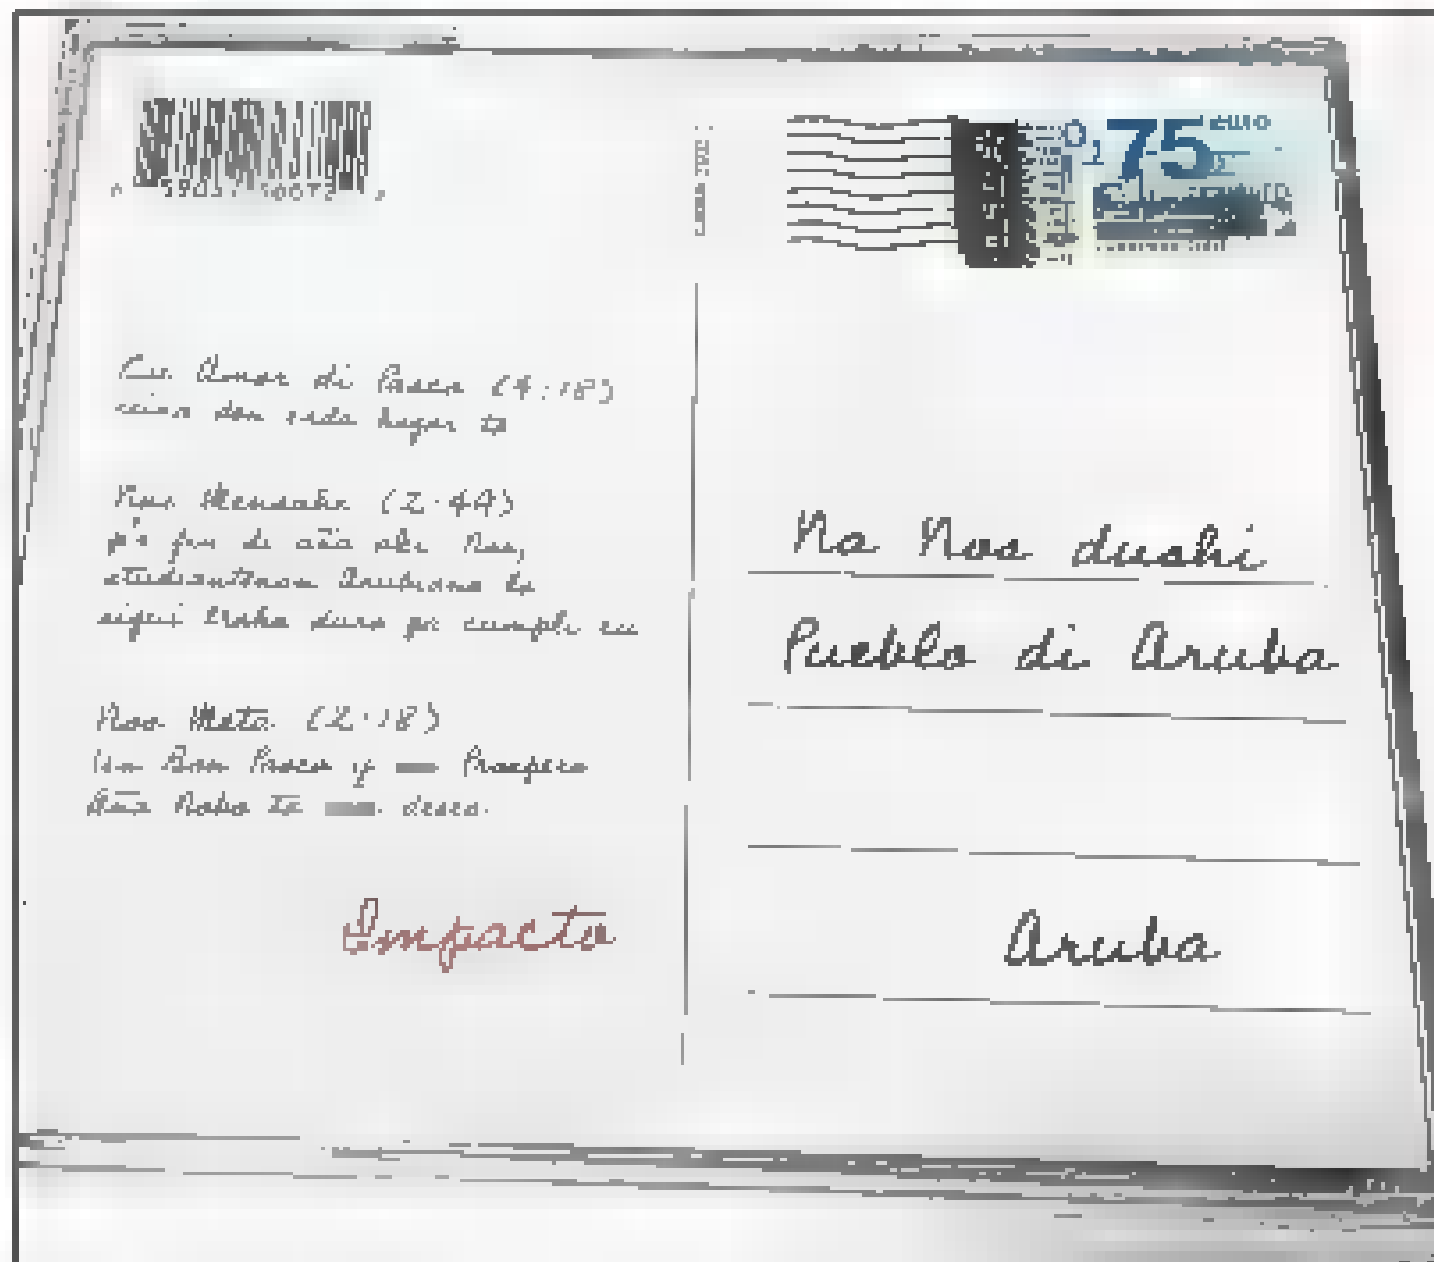 Cu Amor di Pasco (4:18)
den cada hogar ta
Nos Mensahe (2:44)
pa fin di aña aki. Nos,
studiantenan Arubiano ta
sigui traha duro pa cumpli cu
Nos Meta (2:18)
Un Bon Pasco y Prospero
Aña Nobo ta deseo.
Impacto
75 euro
Na Nos dushi
Pueblo di Aruba
Aruba